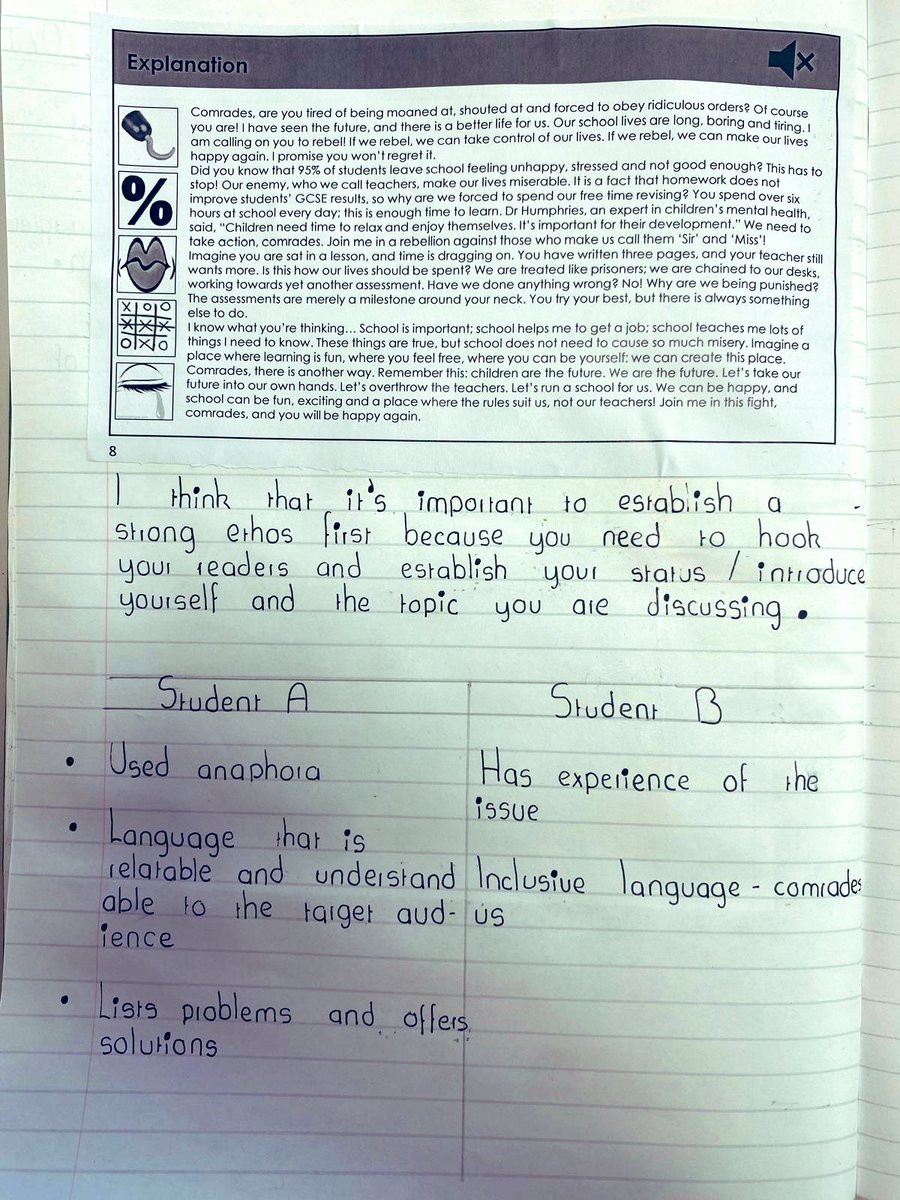 Explanation
Comrades, are you tired of being moaned at, shouted at and forced to obey ridiculous orders? Of course
you are! I have seen the future, and there is a better life for us. Our school lives are long, boring and tiring. I
am calling on you to rebel! If we rebel, we can take control of our lives. If we rebel, we can make our lives
happy again. I promise you won't regret it.
Did you know that 95% of students leave school feeling unhappy, stressed and not good enough? This has to
stop! Our enemy, who we call teachers, make our lives miserable. It is a fact that homework does not
improve students' GCSE results, so why are we forced to spend our free time revising? You spend over six
hours at school every day; this is enough time to learn. Dr Humphries, an expert in children's mental health,
said, "Children need time to relax and enjoy themselves. It's important for their development." We need to
take action, comrades. Join me in a rebellion against those who make us call them 'Sir' and 'Miss'!
Imagine you are sat in a lesson, and time is dragging on. You have written three pages, and your teacher still
wants more. Is this how our lives should be spent? We are treated like prisoners; we are chained to our desks,
working towards yet another assessment. Have we done anything wrong? No! Why are we being punished?
The assessments are merely a milestone around your neck. You try your best, but there is always something
else to do.
I know what you're thinking... School is important; school helps me to get a job; school teaches me lots of
things I need to know. These things are true, but school does not need to cause so much misery. Imagine a
place where learning is fun, where you feel free, where you can be yourself: we can create this place.
Comrades, there is another way. Remember this: children are the future. We are the future. Let's take our
future into our own hands. Let's overthrow the teachers. Let's run a school for us. We can be happy, and
school can be fun, exciting and a place where the rules suit us, not our teachers! Join me in this fight,
comrades, and you will be happy again.
%
X O O
X X X
O X O
8
I think that it's important to establish a
strong ethos first because you need to hook
your readers and establish your status / introduce
yourself and the topic you are discussing.
Student A
• Used anaphora
• Language that is
relatable and understand
able to the target aud-
ience
• Lists problems and offers
solutions
Student B
Has experience of the
issue
Inclusive language - comrades
us